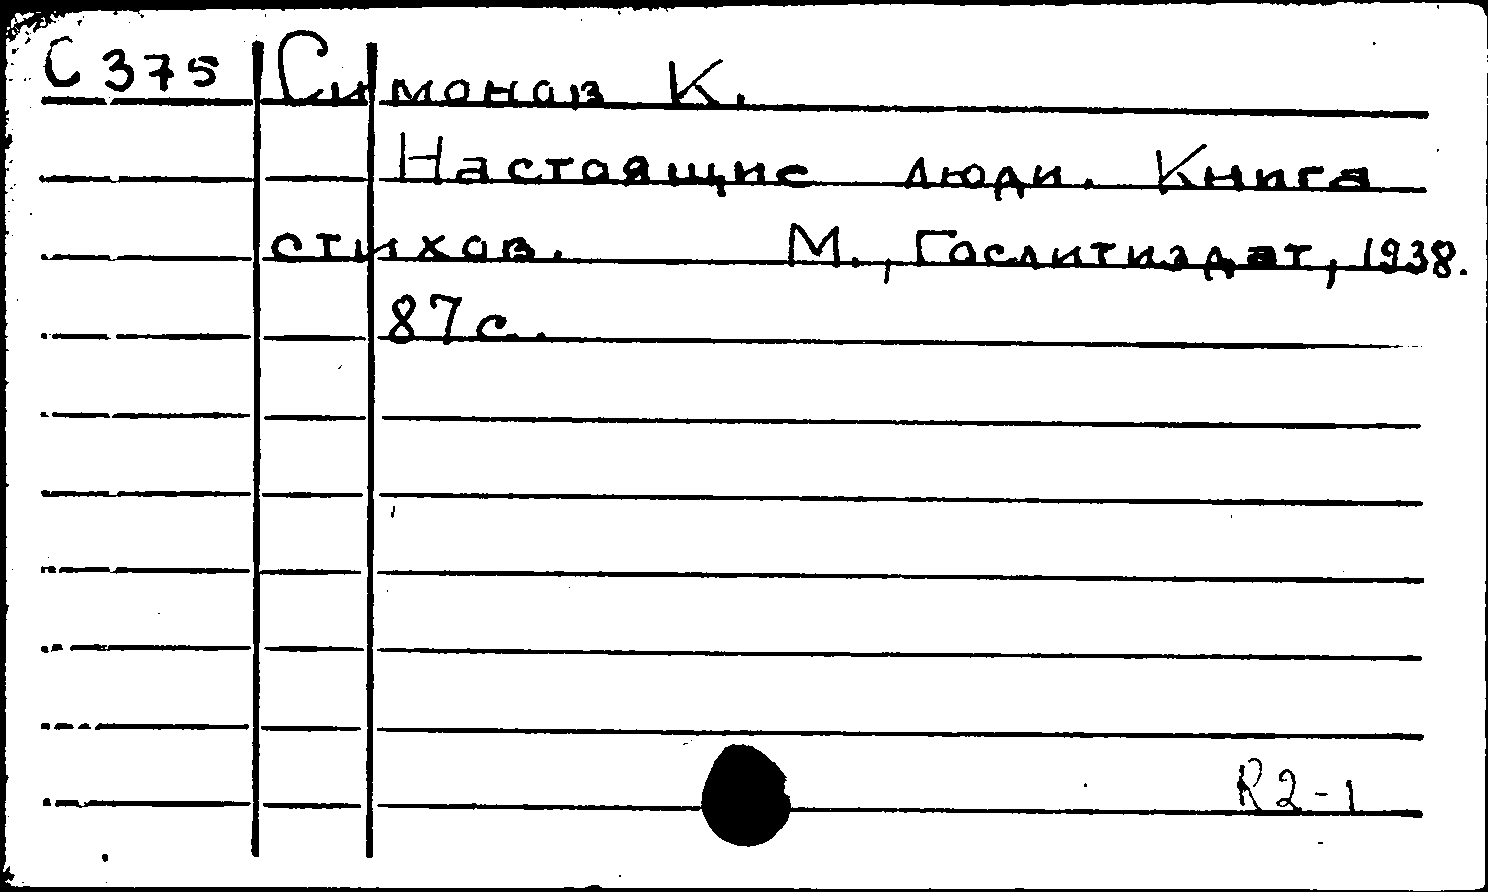 С 375 Симонов К.
Настоящие люди. Книга
стихов. М., Гослитиздат, 1938.
87 с.
R2-1